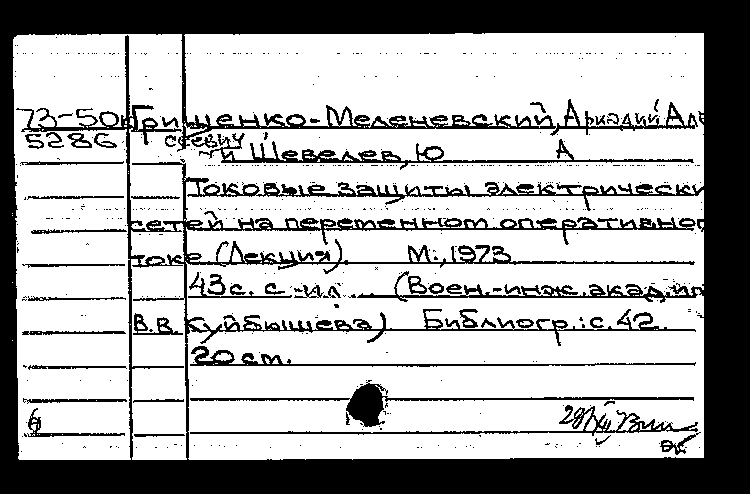 73-50к Грищенко-Меленевский, Аркадий Але
5286 ксеевич
и Шевелев, Ю А
Токовые защиты электрически
сетей на переменном оперативног
токе (Лекция). М., 1973
43 с. с ил. (Воен.-инж. акад. им
В.В. Куйбышева) Библиогр.: с. 42.
20 см.
28/XII 73